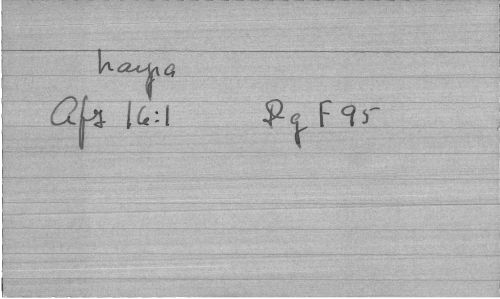 harpa
Afz 16:1 Rg F 95